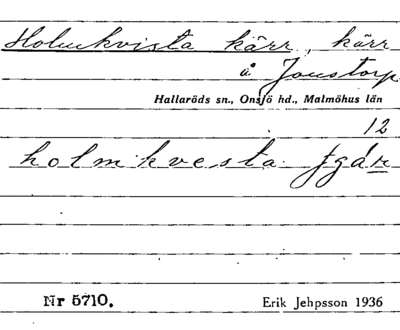 Holmkvista kärr, kärr
å Jonstorp
Hallaröds sn., Onsjö hd., Malmöhus län
12
holmkvesta
Nr 5710.
Erik Jehpsson 1936